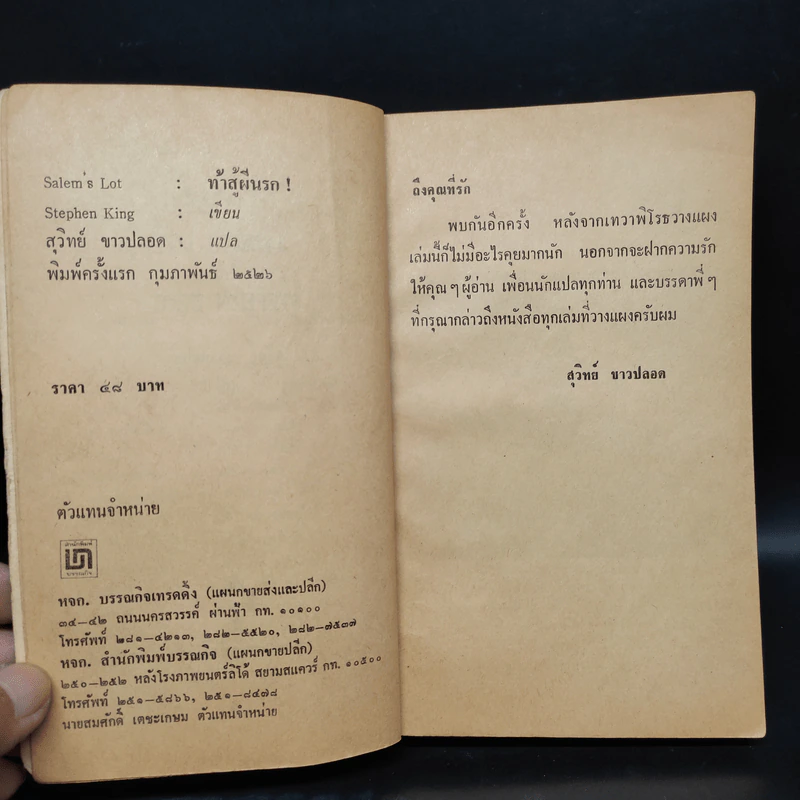 Salem's Lot : ท้าสู้ผีนรก !
Stephen King : เขียน
สุวิทย์ ขาวปลอด : แปล
พิมพ์ครั้งแรก กุมภาพันธ์ ๒๕๒๖
ราคา ๔๘ บาท
ตัวแทนจำหน่าย
สำนักพิมพ์
บรรณกิจ
หจก. บรรณกิจเทรดดิ้ง (แผนกขายส่งและปลีก)
๓๔–๔๒ ถนนนครสวรรค์ ผ่านฟ้า กท. ๑๐๑๐๐
โทรศัพท์ ๒๘๑–๔๒๑๓, ๒๘๒–๕๕๒๐, ๒๘๒–๗๕๓๗
หจก. สำนักพิมพ์บรรณกิจ (แผนกขายปลีก)
๒๕๐–๒๕๒ หลังโรงภาพยนตร์ลิโด้ สยามสแควร์ กท. ๑๐๕๐๐
โทรศัพท์ ๒๕๑–๕๘๖๖, ๒๕๑–๘๔๗๘
นายสมศักดิ์ เตชะเกษม ตัวแทนจำหน่าย
ถึงคุณที่รัก
พบกันอีกครั้ง หลังจากเทวาพิโรธวางแผง
เล่มนี้ก็ไม่มีอะไรคุยมากนัก นอกจากจะฝากความรัก
ให้คุณ ๆ ผู้อ่าน เพื่อนนักแปลทุกท่าน และบรรดาพี่ ๆ
ที่กรุณากล่าวถึงหนังสือทุกเล่มที่วางแผงครับผม
สุวิทย์ ขาวปลอด